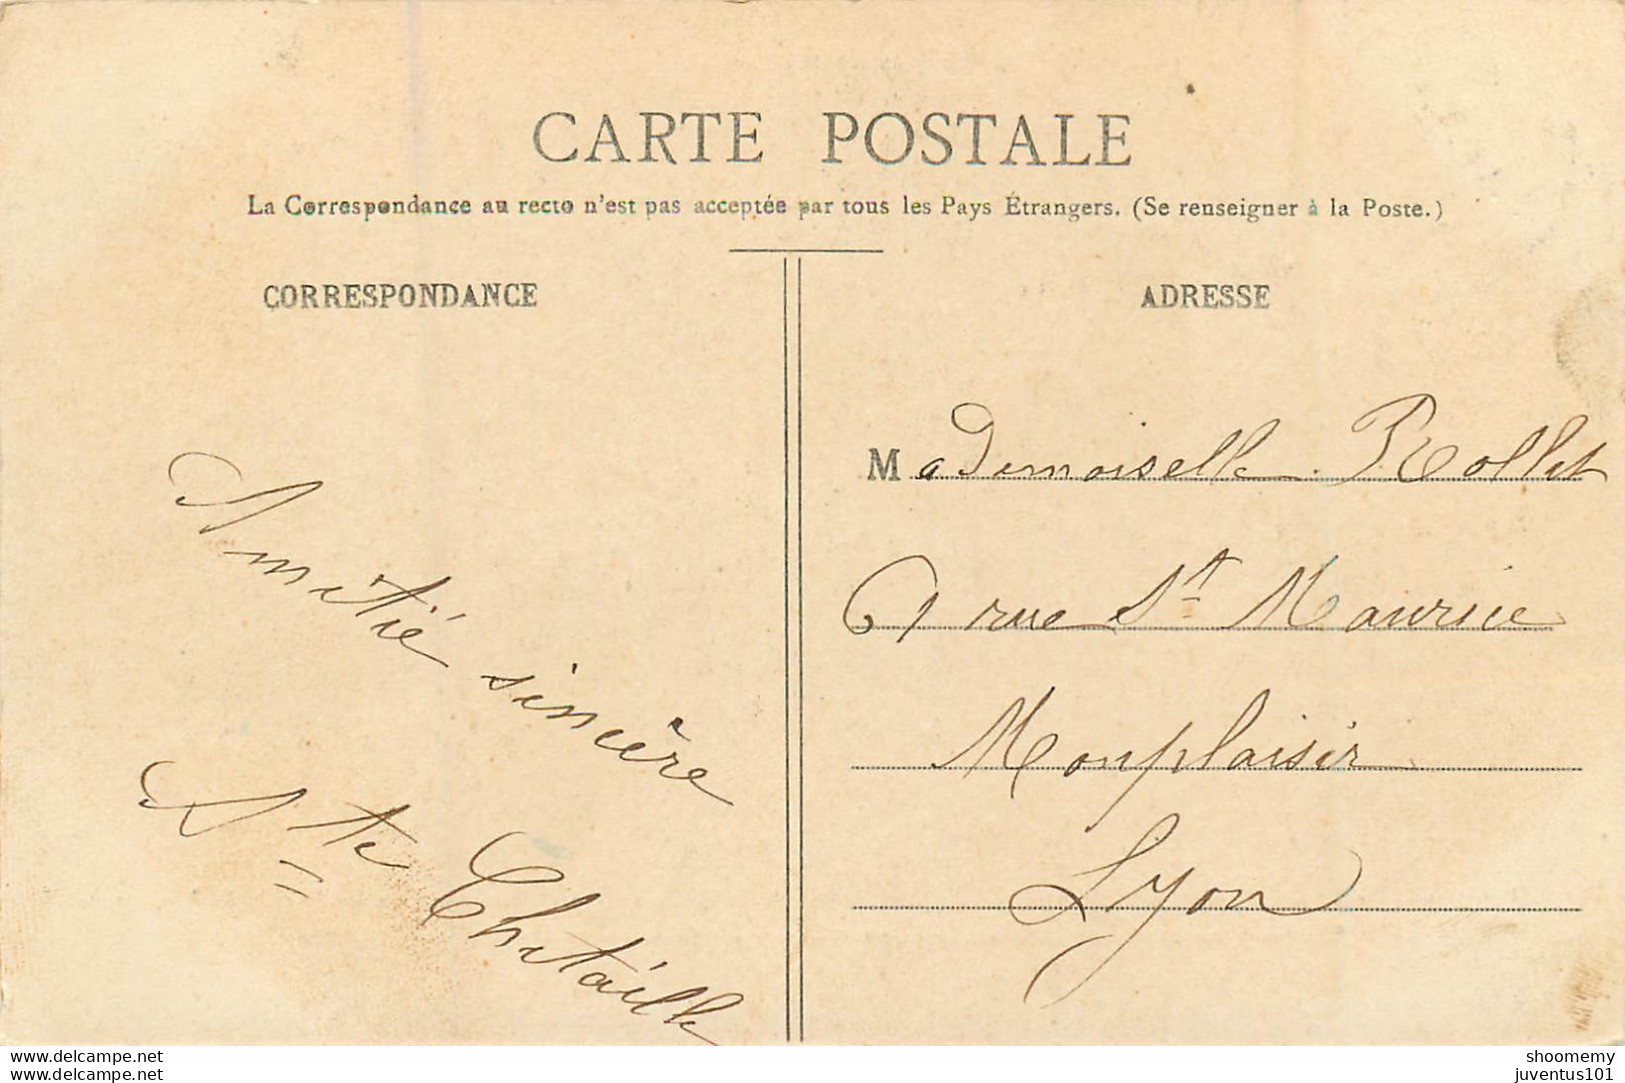 CARTE POSTALE
La Correspondance au recto n'est pas acceptée par tous les Pays Étrangers. (Se renseigner à la Poste.)
CORRESPONDANCE
Amitié sincère
Ste Chataille
ADRESSE
Mademoiselle Rollet
61 rue St Maurice
Monplaisir
Lyon
www.delcampe.net
www.delcampe.net
shoomemy
juventus101